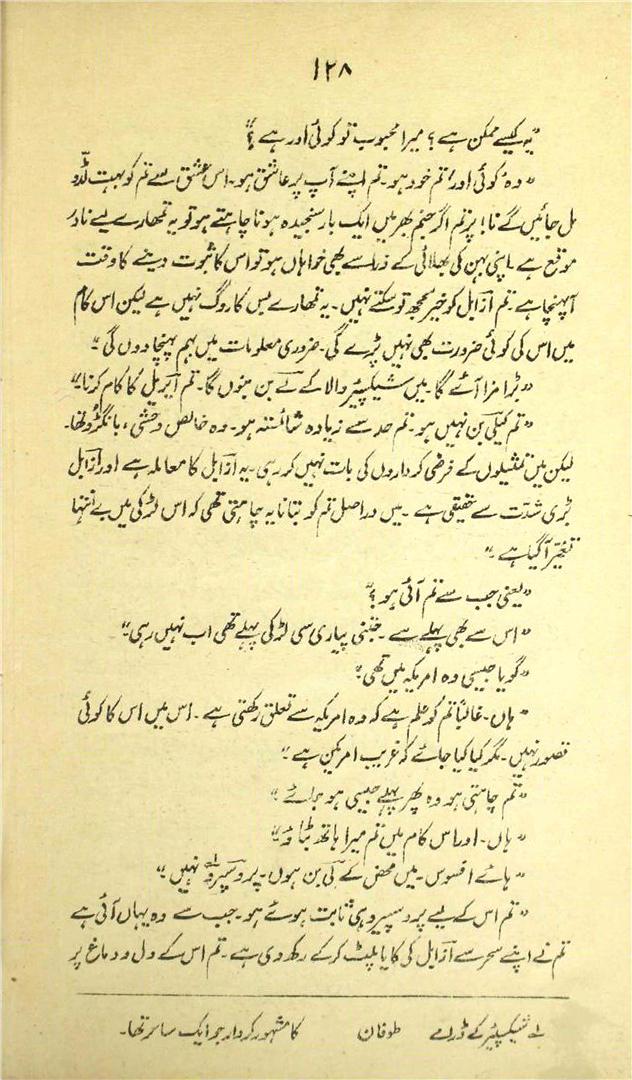 ۱۲۸
"یہ کیسے ممکن ہے؟ میرا محبوب تو کوئی اور ہے؟"
"وہ کوئی اور، تم خود ہو۔ تم اپنے آپ پر عاشق ہو۔ اس عشق سے تم کو بہت لڈو
مل جائیں گے نا! پر تم اگر جنم بھر میں ایک بار سنجیدہ ہونا چاہتے ہو تو یہ تمھارے لیے نادر
موقع ہے۔ اپنی بہن کی بھلائی کے ذرا سے بھی خواہاں ہو تو اس کا ثبوت دینے کا وقت
آپہنچا ہے۔ تم آزابل کو خیر سمجھ تو سکتے نہیں۔ یہ تمھارے بس کا روگ نہیں ہے لیکن اس کام
میں اس کی کوئی ضرورت بھی نہیں پڑے گی۔ ضروری معلومات میں بہم پہنچا دوں گی"۔
"بڑا مزا آئے گا۔ میں شیکسپیئر والا کے لے بن بنوں گا۔ تم ایریل کا کام کرنا"
"تم کیلی بن نہیں ہو۔ تم حد سے زیادہ شائستہ ہو۔ وہ خالص وحشی، بانگڑو تھا۔
لیکن میں تمثیلوں کے فرضی کرداروں کی بات نہیں کر رہی۔ یہ آزابل کا معاملہ ہے اور آزابل
بڑی شدت سے حقیقی ہے۔ میں دراصل تم کو بتانا یہ چاہتی تھی کہ اس لڑکی میں بے انتہا
تغیر آگیا ہے۔"
"یعنی جب سے تم آئی ہو؟"
"اس سے بھی پہلے سے۔ جتنی پیاری سی لڑکی پہلے تھی اب نہیں رہی"۔
"گویا جیسی وہ امریکہ میں تھی؟
"ہاں۔ غالباً تم کو علم ہے کہ وہ امریکہ سے تعلق رکھتی ہے۔ اس میں اس کا کوئی
قصور نہیں۔ مگر کیا کیا جائے کہ غریب امریکن ہے"۔
"تم چاہتی ہو وہ پھر پہلے جیسی ہو جائے"۔
"ہاں۔ اور اس کام میں تم میرا ہاتھ بٹاؤ"۔
"ہائے افسوس۔ میں محض کے لی بن ہوں۔ پروسپیرو لے نہیں"۔
"تم اس کے لیے پروسپیرو ہی ثابت ہوئے ہو۔ جب سے وہ یہاں آئی ہے
تم نے اپنے سحر سے آزابل کی کایا پلٹ کر کے رکھ دی ہے۔ تم اس کے دل و دماغ پر
لے شیکسپیئر کے ڈرامے طوفان کا مشہور کردار جو ایک ساحر تھا۔